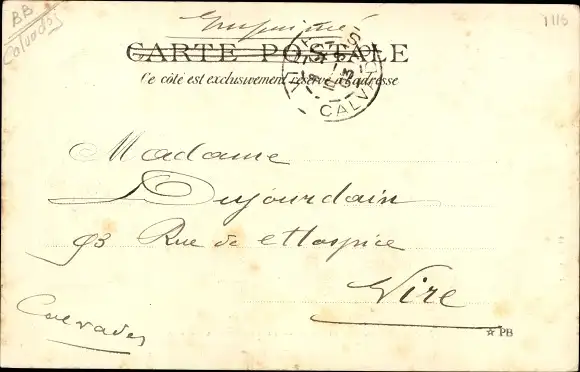 BB
Calvados
1116
Imprimé
CARTE POSTALE
Ce côté est exclusivement réservé à l'adresse
CALVADOS
Madame
Dujourdain
93 Rue de l'Hospice
Vire
Calvados
☆ PB